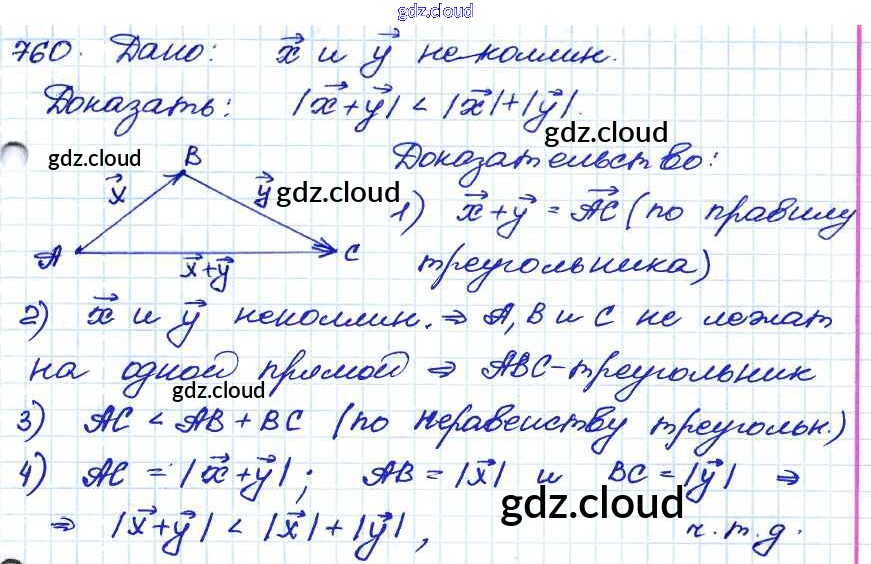 gdz.cloud
760. Дано: x⃗ и y⃗ неколлин.
Доказать: |x⃗+y⃗| < |x⃗|+|y⃗|.
gdz.cloud
gdz.cloud
B
Доказательство:
x⃗
y⃗
gdz.cloud
1) x⃗+y⃗ = AC⃗ (по правилу
A
C
x⃗+y⃗
треугольника)
2) x⃗ и y⃗ неколлин. ⇒ A, B и C не лежат
на одной прямой ⇒ ABC-треугольник
gdz.cloud
3) AC < AB + BC (по неравенству треугольн.)
4) AC = |x⃗+y⃗|; AB = |x⃗| и BC = |y⃗| ⇒
gdz.cloud
⇒ |x⃗+y⃗| < |x⃗| + |y⃗|, ч.т.д.